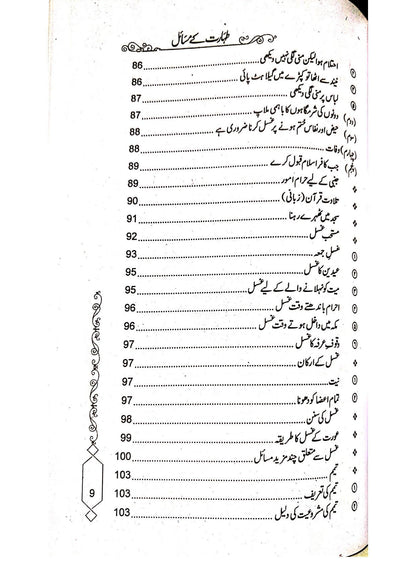 طہارت کے مسائل
احتلام ہوا لیکن منی لگی نہیں دیکھی 86
نیند سے اٹھا تو کپڑے میں گیلاہٹ پائی 86
لباس پر منی لگی دیکھی 87
(دوم) دونوں کی شرمگاہوں کا باہمی ملاپ 87
(سوم) حیض اور نفاس ختم ہونے پر غسل کرنا ضروری ہے 88
(چہارم) وفات 88
(پنجم) جب کافر اسلام قبول کرے 89
جنبی کے لیے حرام امور 89
تلاوت قرآن (زبانی) 90
مسجد میں ٹھہرے رہنا 91
مستحب غسل 92
غسل جمعہ 93
عیدین کا غسل 95
میت کو نہلانے والے کے لیے غسل 95
احرام باندھتے وقت غسل 96
مکہ میں داخل ہوتے وقت غسل 96
وقوف عرفہ کا غسل 97
غسل کے ارکان 97
نیت 97
تمام اعضا کو دھونا 97
غسل کی سنن 98
عورت کے غسل کا طریقہ 99
غسل سے متعلق چند مزید مسائل 100
تیمم 103
تیمم کی تعریف 103
تیمم کی مشروعیت کی دلیل 103
9